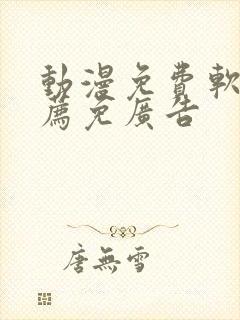 動漫免費軟
薦免廣告
唐無雪